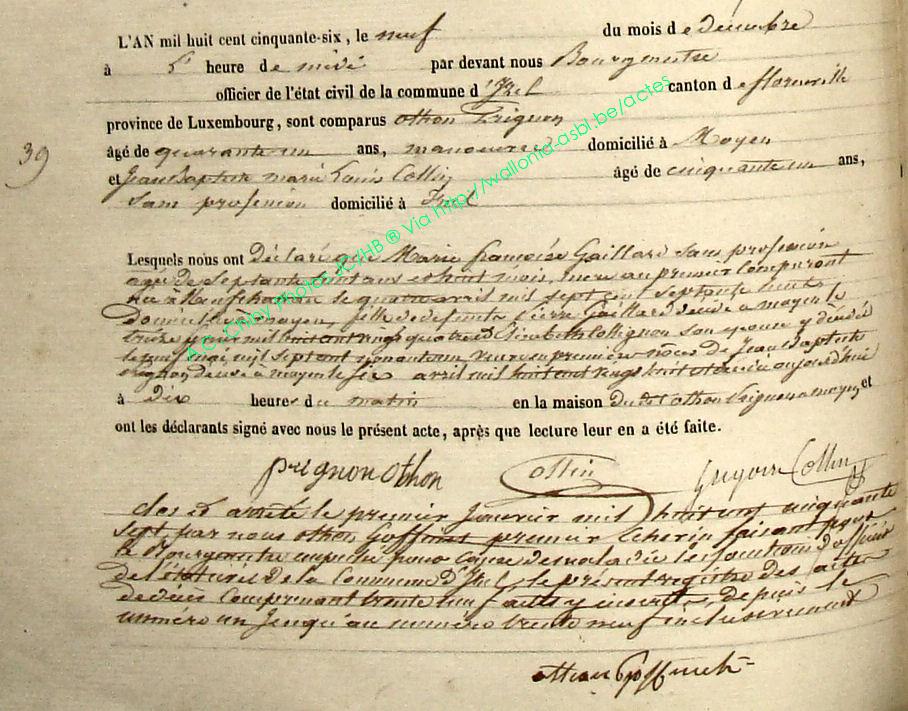 L'AN mil huit cent cinquante-six, le neuf du mois de decembre
à 5 heure de midi par devant nous Bourgmestre
officier de l'état civil de la commune d'Izel canton de florenville
province de Luxembourg, sont comparus othon Prignon
39
âgé de quarante un ans, manoeuvre domicilié à Moyen
et Jean Baptiste marie Louis Collin âgé de cinquante un ans,
sans profession domicilié à Izel
Lesquels nous ont Déclaré que Marie françoise Gaillard sans profession
agée de septante huit ans et huit mois, mere au premier comparant
née à Neufchateau le quatre avril mil sept cent septante huit
domiciliée à moyen, fille de defunts pierre Gaillard décédé a moyen le
mil huit cent vingt quatre & Elisabeth Collignon son epouse y décédée
le mai mil sept cent nonante un veuve en première noces de Jean baptiste
prignon décédé à moyen le six avril mil huit cent vingt huit est décédée aujourd'hui
à dix heures du matin en la maison du dit othon Prignon a moyen, et
ont les déclarants signé avec nous le présent acte, après que lecture leur en a été faite.
prignon othon Collin Grégoire Collin
clos & arrêté le premier Janvier mil huit cent cinquante
sept, par nous othon Goffinet premier Echevin faisant pour
le Bourgmestre empeché pour cause de maladie les fonctions d'officier
de l'état civil de la Commune d'Izel, le présent registre des actes
de décès comprenant trente neuf actes y inserés, depuis le
numéro un Jusqu'au numéro trente neuf inclusivement
othon Goffinet
A.C. Chiny Photos JC/HB ® Via http://wallonia-asbl.be/actes